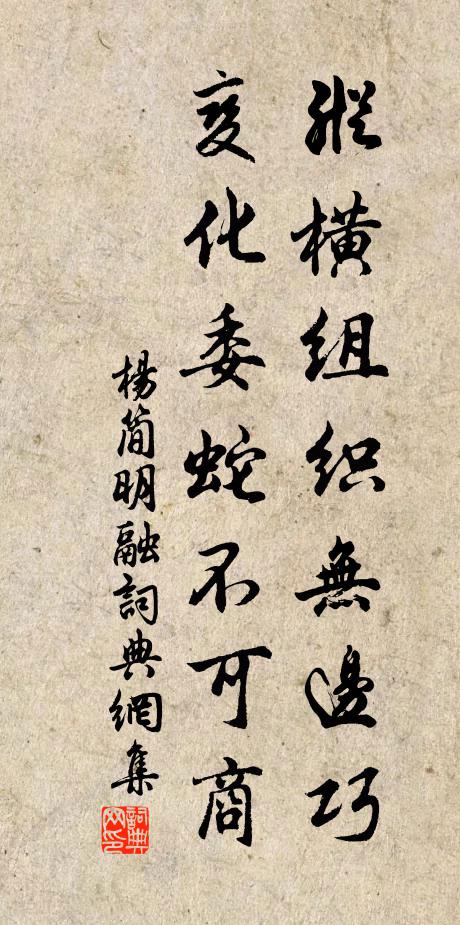 縱橫組织無邊巧
变化委蛇不可商
楊简明融詞典網集
詞典网印